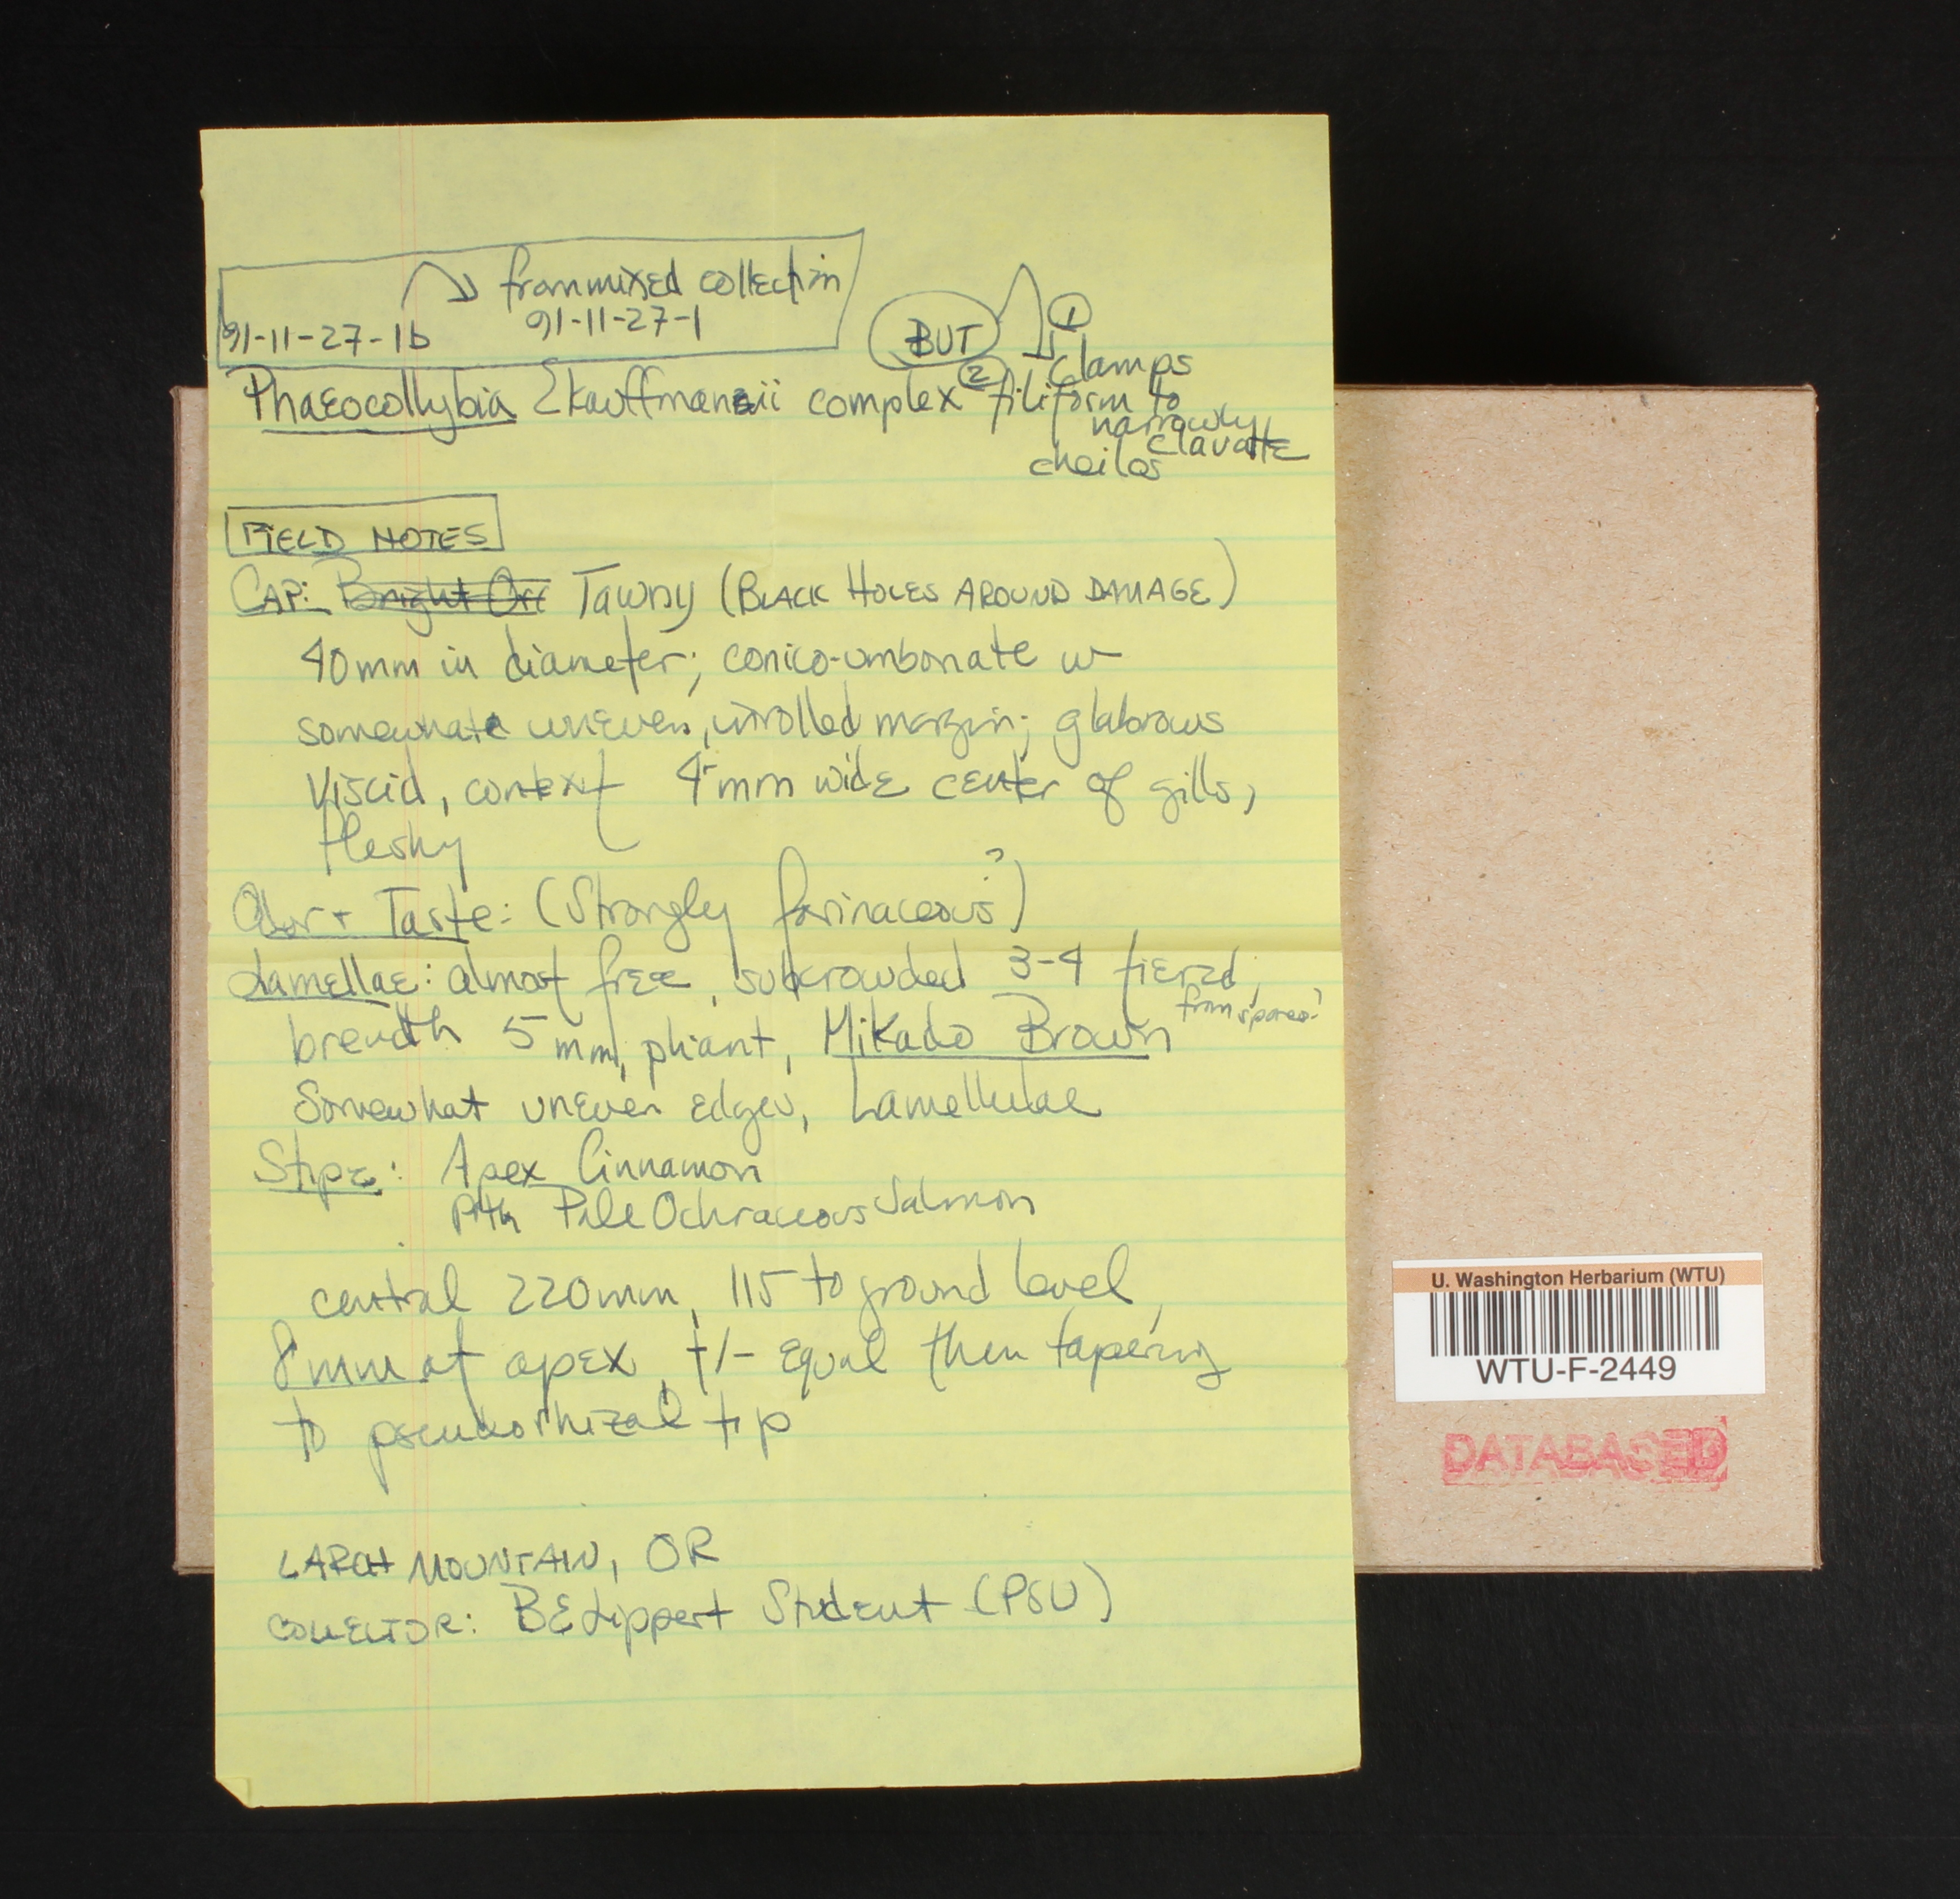 from mixed collection
91-11-27-1b 91-11-27-1
BUT ① clamps
Phaeocollybia {kauffmanii complex ② filiform to
narrowly
clavate
cheilos
FIELD NOTES
CAP: Bright Or Tawny (BLACK HOLES AROUND DAMAGE)
40mm in diameter; conico-umbonate w
somewhat uneven, inrolled margin; glabrous
Viscid, context 4mm wide center of gills,
fleshy
Odor + Taste: (Strongly farinaceous?)
Lamellae: almost free, subcrowded 3-4 tiered,
breadth 5mm, pliant, Mikado Brown from spores?
Somewhat uneven edges, Lamellulae
Stipe: Apex Cinnamon
Pith Pale Ochraceous Salmon
central 220mm, 115 to ground level,
8mm at apex, +/- equal then tapering
to pseudorhizal tip
LARCH MOUNTAIN, OR
COLLECTOR: BE Lippert Student (PSU)
U. Washington Herbarium (WTU)
WTU-F-2449
DATABASED